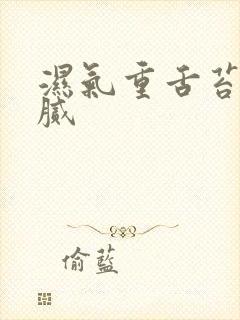 濕氣重舌苔
膩
偷藍